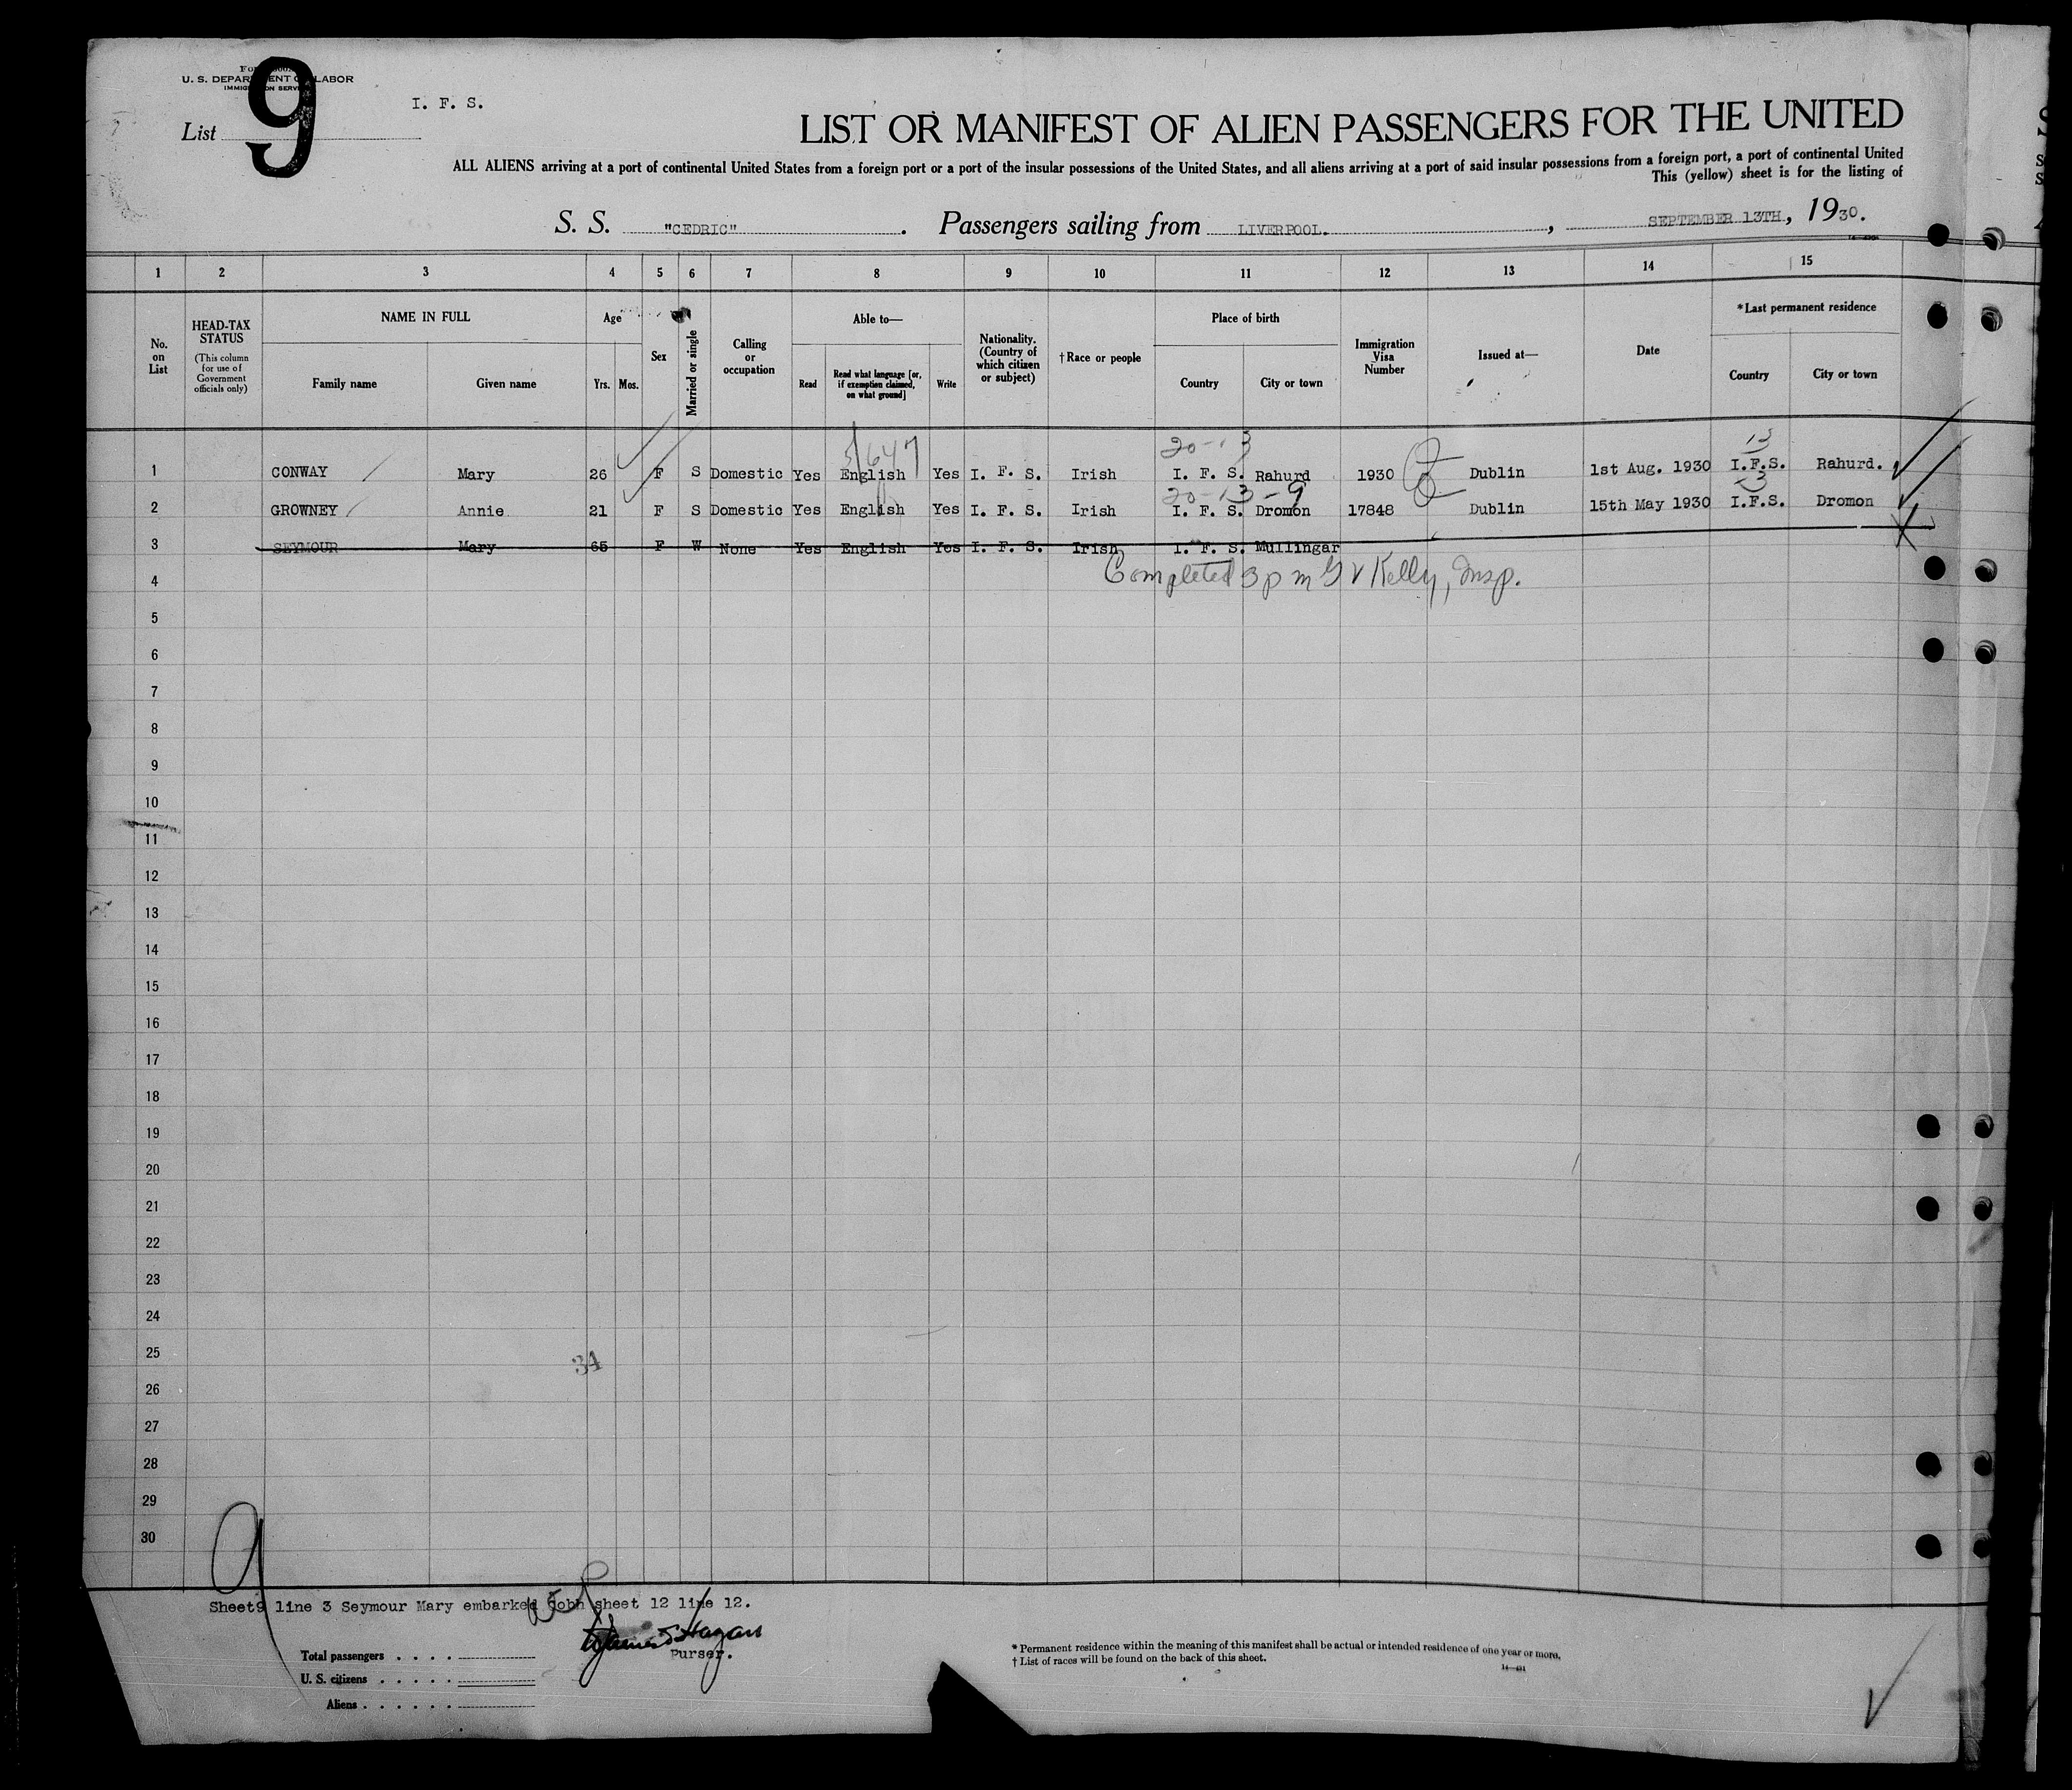 U. S. DEPARTMENT OF LABOR
IMMIGRATION SERVICE
List 9
I. F. S.
LIST OR MANIFEST OF ALIEN PASSENGERS FOR THE UNITED
ALL ALIENS arriving at a port of continental United States from a foreign port or a port of the insular possessions of the United States, and all aliens arriving at a port of said insular possessions from a foreign port, a port of continental United
This (yellow) sheet is for the listing of
S. S. "CEDRIC". Passengers sailing from LIVERPOOL. , SEPTEMBER 13TH, 1930.
1 2 3 4 5 6 7 8 9 10 11 12 13 14 15
No. on List
HEAD-TAX STATUS (This column for use of Government officials only)
NAME IN FULL
Family name Given name
Age
Yrs. Mos.
Sex
Married or single
Calling or occupation
Able to—
Read
Read what language [or, if exemption claimed, on what ground]
Write
Nationality. (Country of which citizen or subject)
†Race or people
Place of birth
Country City or town
Immigration Visa Number
Issued at—
Date
*Last permanent residence
Country City or town
20-13 13
1 CONWAY Mary 26 F S Domestic Yes English Yes I. F. S. Irish I. F. S. Rahurd 1930 Dublin 1st Aug. 1930 I.F.S. Rahurd.
20-13-9 13
2 GROWNEY Annie 21 F S Domestic Yes English Yes I. F. S. Irish I. F. S. Dromon 17848 Dublin 15th May 1930 I.F.S. Dromon
3 SEYMOUR Mary 65 F W None Yes English Yes I. F. S. Irish I. F. S. Mullingar
Completed 3 p m G V Kelly, Insp.
4
5
6
7
8
9
10
11
12
13
14
15
16
17
18
19
20
21
22
23
24
25
34
26
27
28
29
30
9
Sheet9 line 3 Seymour Mary embarked Cobh sheet 12 line 12.
Purser.
Total passengers . . . .
U. S. citizens . . . . .
Aliens . . . . . .
* Permanent residence within the meaning of this manifest shall be actual or intended residence of one year or more.
† List of races will be found on the back of this sheet.